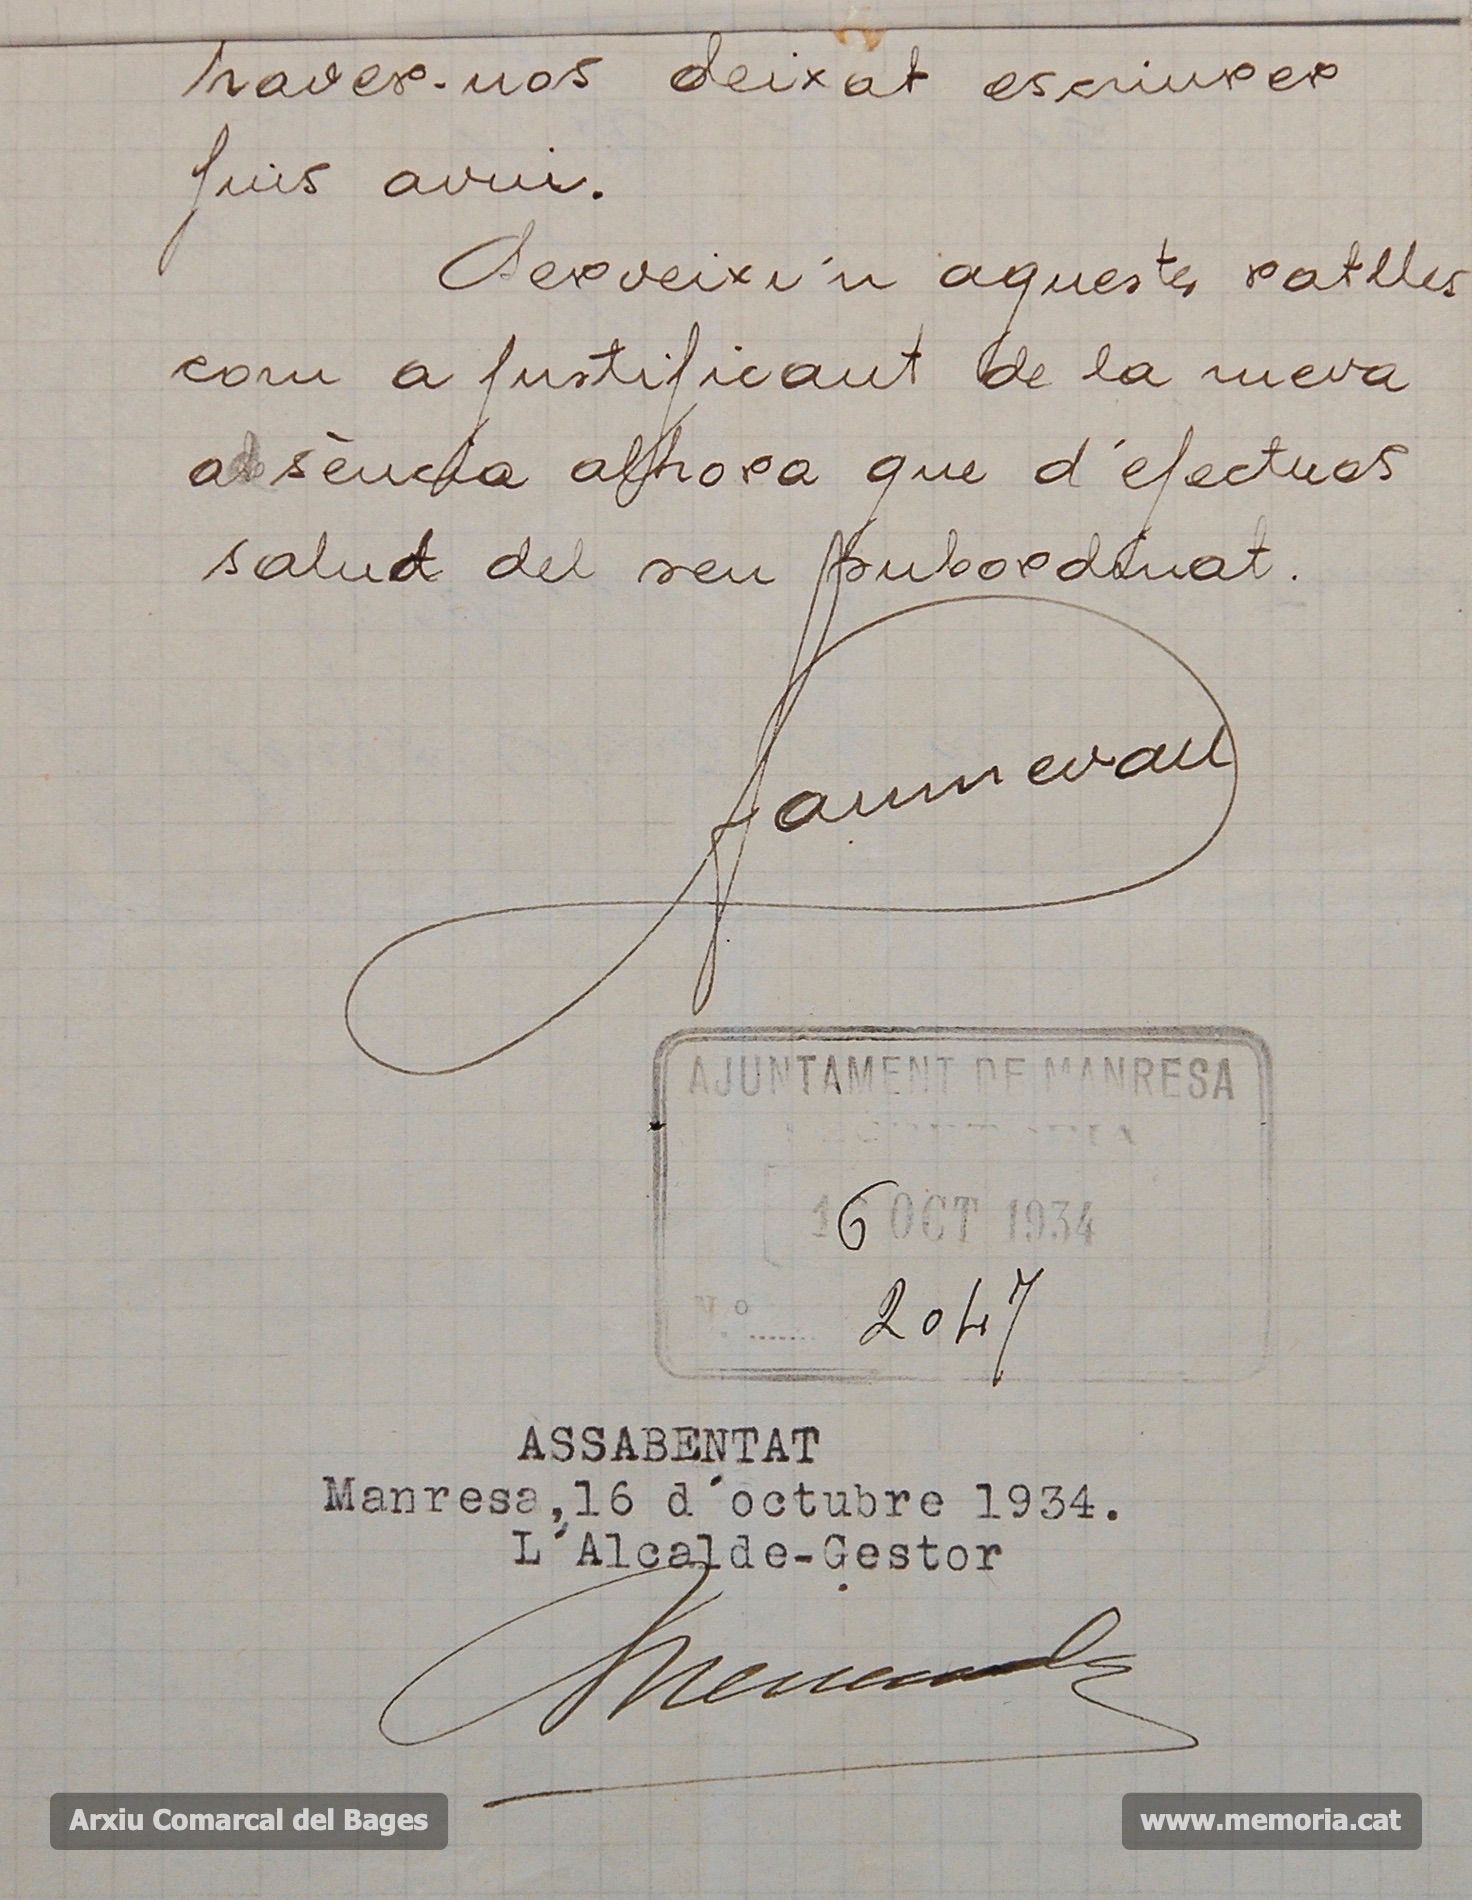 haver-nos deixat escriurer
fins avui.
Serveixi'n aquestes ratlles
com a justificant de la meva
absència alhora que d'efectuos
salud del seu subordinat.
AJUNTAMENT DE MANRESA
16 OCT 1934
2047
ASSABENTAT
Manresa,16 d'octubre 1934.
L'Alcalde-Gestor
Arxiu Comarcal del Bages
www.memoria.cat